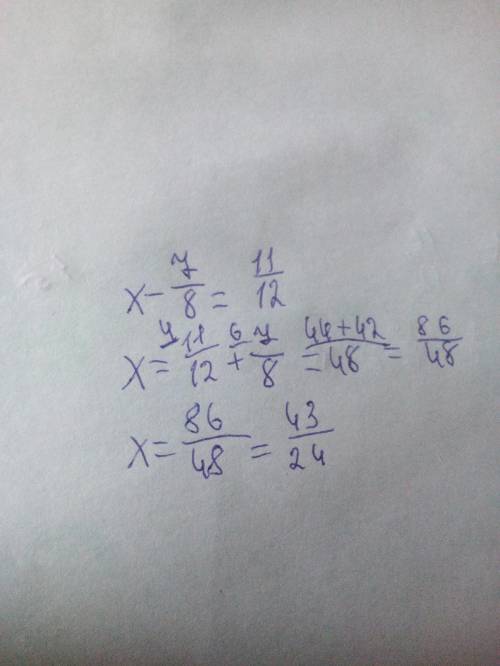 x - 7/8 = 11/12
x = ⁴11/12 + ⁶7/8 = 44+42/48 = 86/48
x = 86/48 = 43/24